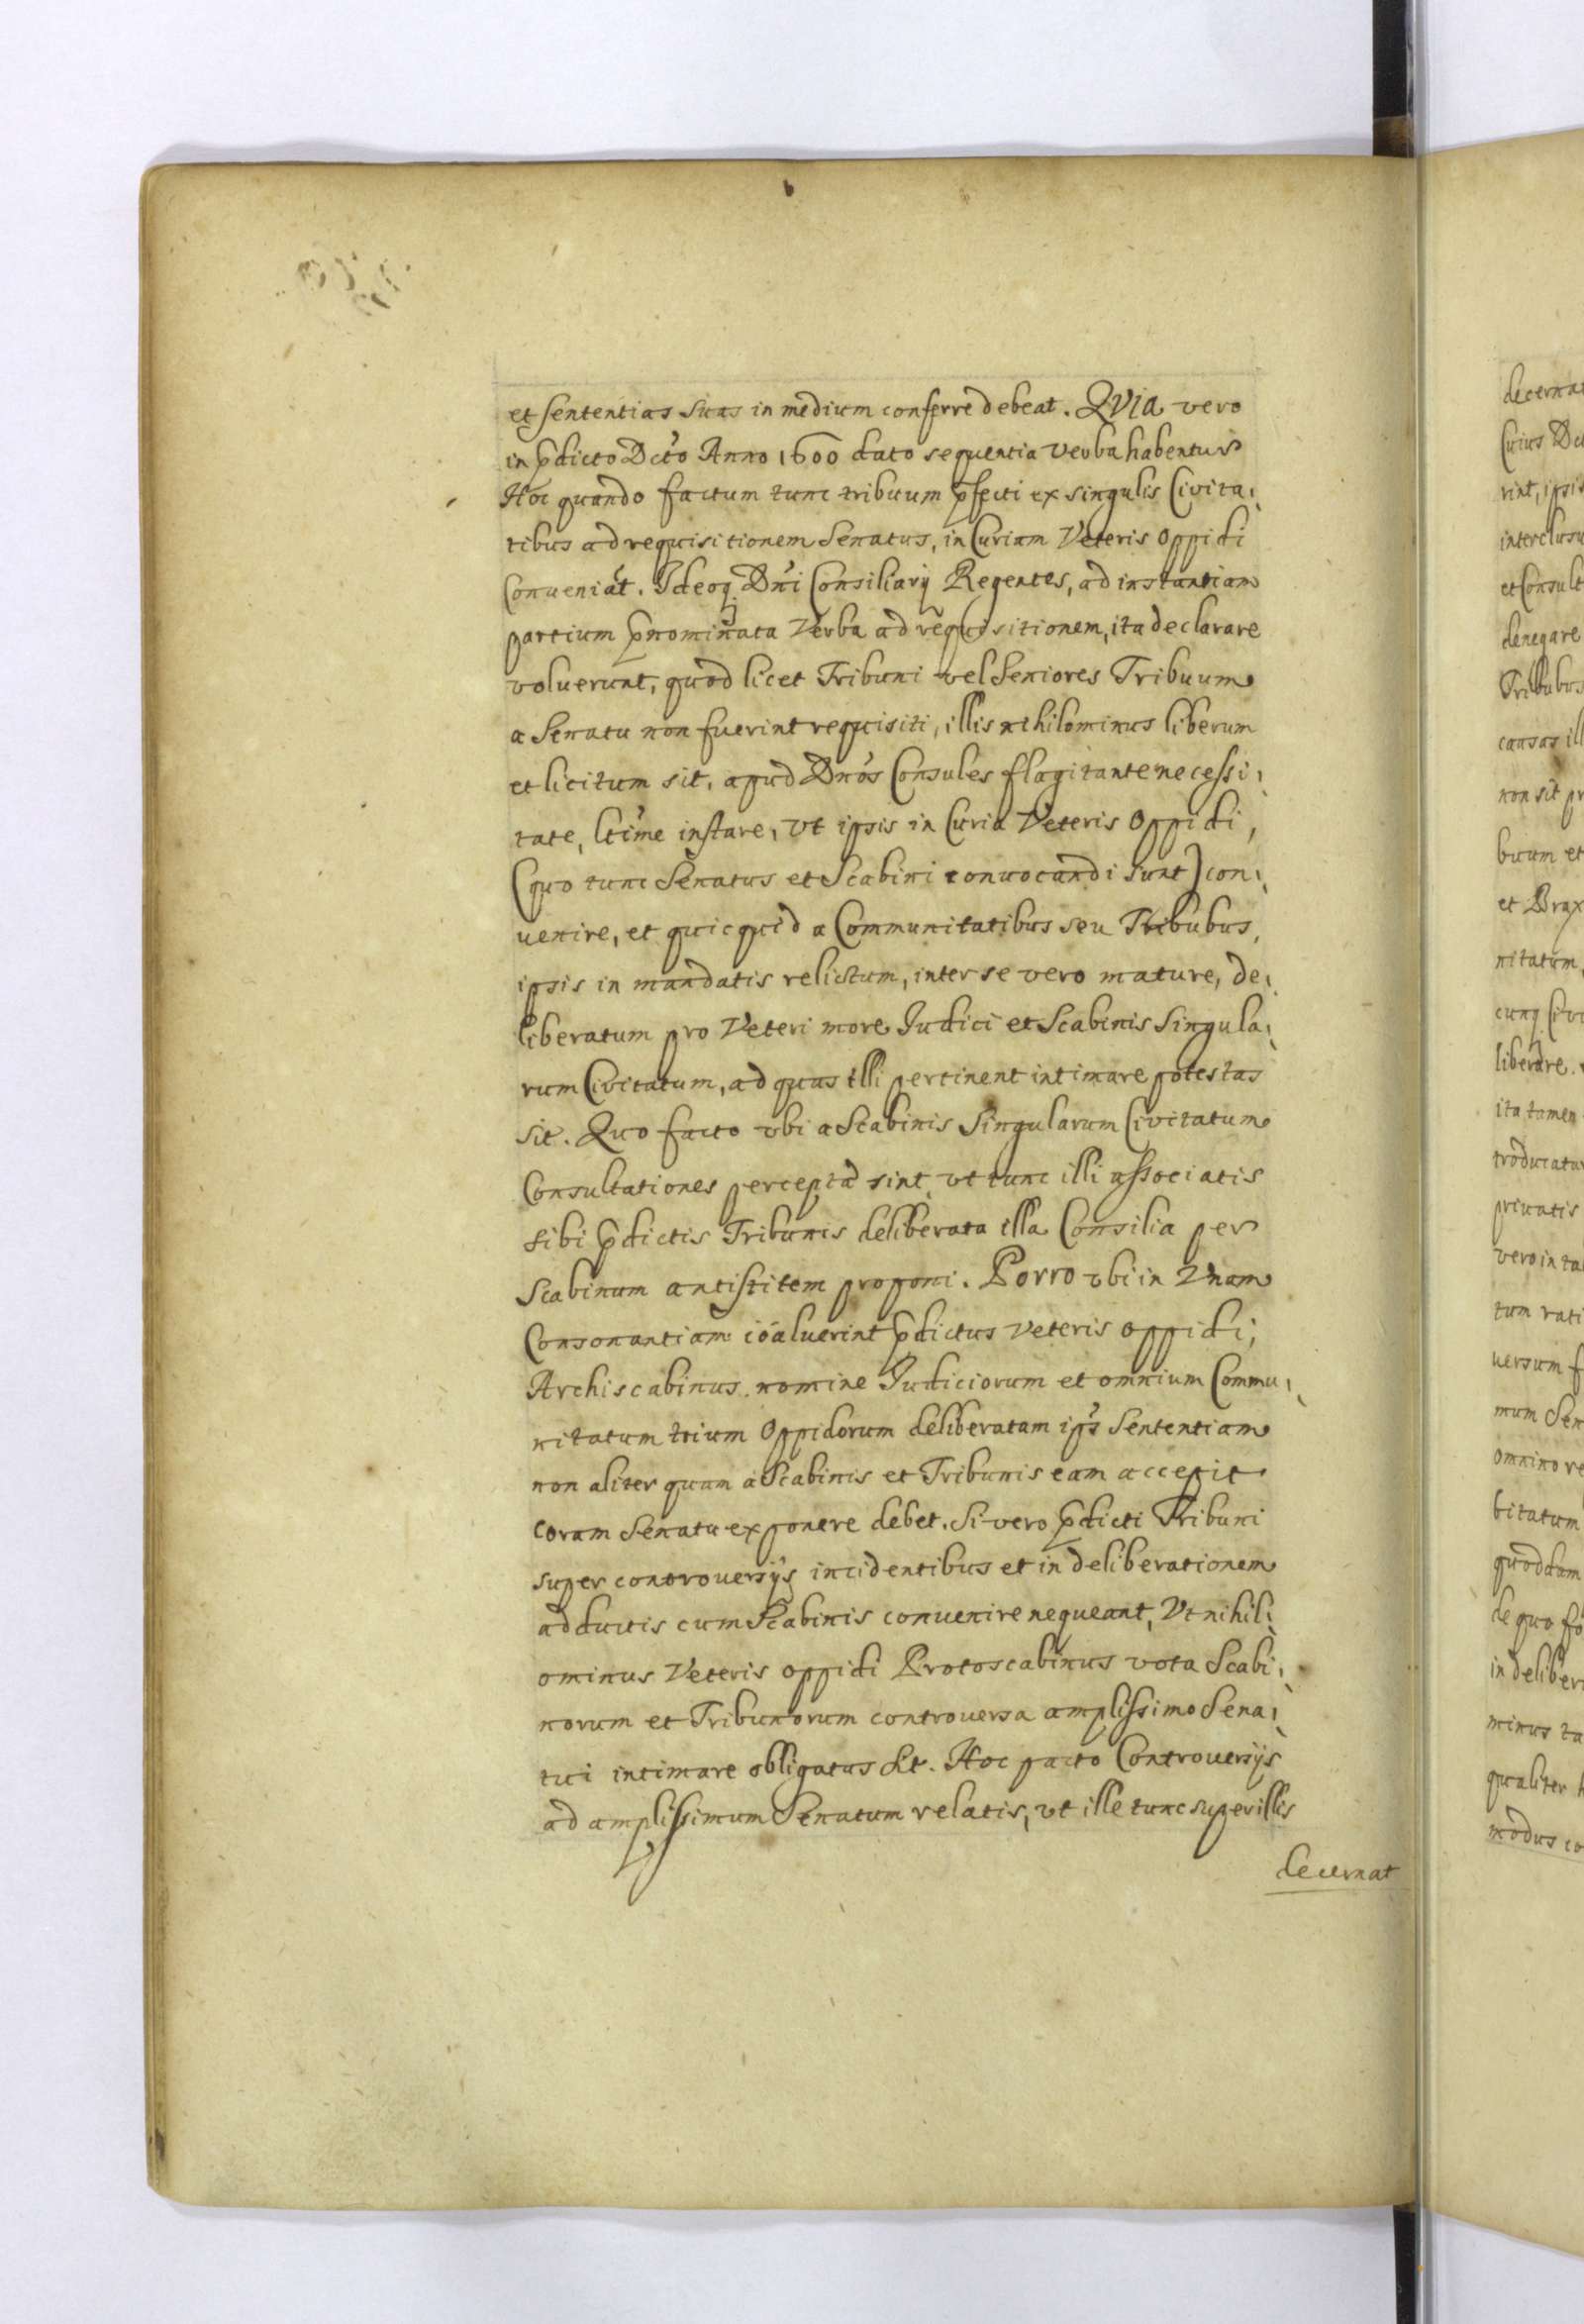 et sententias suas in medium conferre debeat. QVia vero
in p̄dicto Dcto Anno 1600 dato sequentia verba habentur
Hoc quando factum tunc tribuum p̄fecti ex singulis Civita,
tibus ad requisitionem Senatus, in Curiam Veteris Oppidi
Conveniāt. Ideoq Dni Consiliarij Regentes, ad instantiam
partium p̄nominata Verba ad requisitionem, ita declarare
voluerunt, quod licet Tribuni vel Seniores Tribuum
a Senatu non fuerint requisiti, illis nihilominus liberum
et licitum sit, apud Dnos Consules flagitante necessi,
tate, ltime instare, vt ipsis in Curia Veteris Oppidi,
(quo tunc Senatus et Scabini convocandi sunt) con,
uenire, et quicquid a Communitatibus seu Tribubus,
ipsis in mandatis relictum, inter se vero mature, de,
liberatum pro Veteri more Judici et Scabinis Singula,
rum Civitatum, ad quas illi pertinent intimare potestas
sit. Quo facto vbi a Scabinis Singularum Civitatum
Consultationes percepta sint, vt tunc illi associatis
sibi p̄dictis Tribunis deliberata illa Consilia per
Scabinum antistitem proponi. Porro vbi in Vnam
Consonantiam coaluerint p̄dictus Veteris Oppidi,
Archiscabinus nomine Judiciorum et omnium Commu,
nitatum trium Oppidorum deliberatam ips Sententiam
non aliter quam a Scabinis et Tribunis eam accepit
coram Senatu exponere debet. Si vero p̄dicti Tribuni
super controversijs incidentibus et in deliberationem
adductis cum Scabinis convenire nequeant, Vt nihil,
ominus Veteris oppidi Protoscabinus vota Scabi,
norum et Tribunorum controversa amplissimo Sena,
tui intimare obligatus sit. Hoc pacto Controversijs
ad amplissimum Senatum relatis, vt ille tunc super illis
decernat
decerna
Cuius Dc
rint, ipsis
interclusu
et Consult
denegare
Tribubus
causas ill
non sit pr
buum et
et Prax
nitatum,
cunq Civi
liberare.
ita tamen
troducatur
privatis
vero in ta
tum rati
uersum f
mum Sen
omnino re
bitatum
quoddam
de quo fo
in deliber
minus ta
qualiter h
modus co